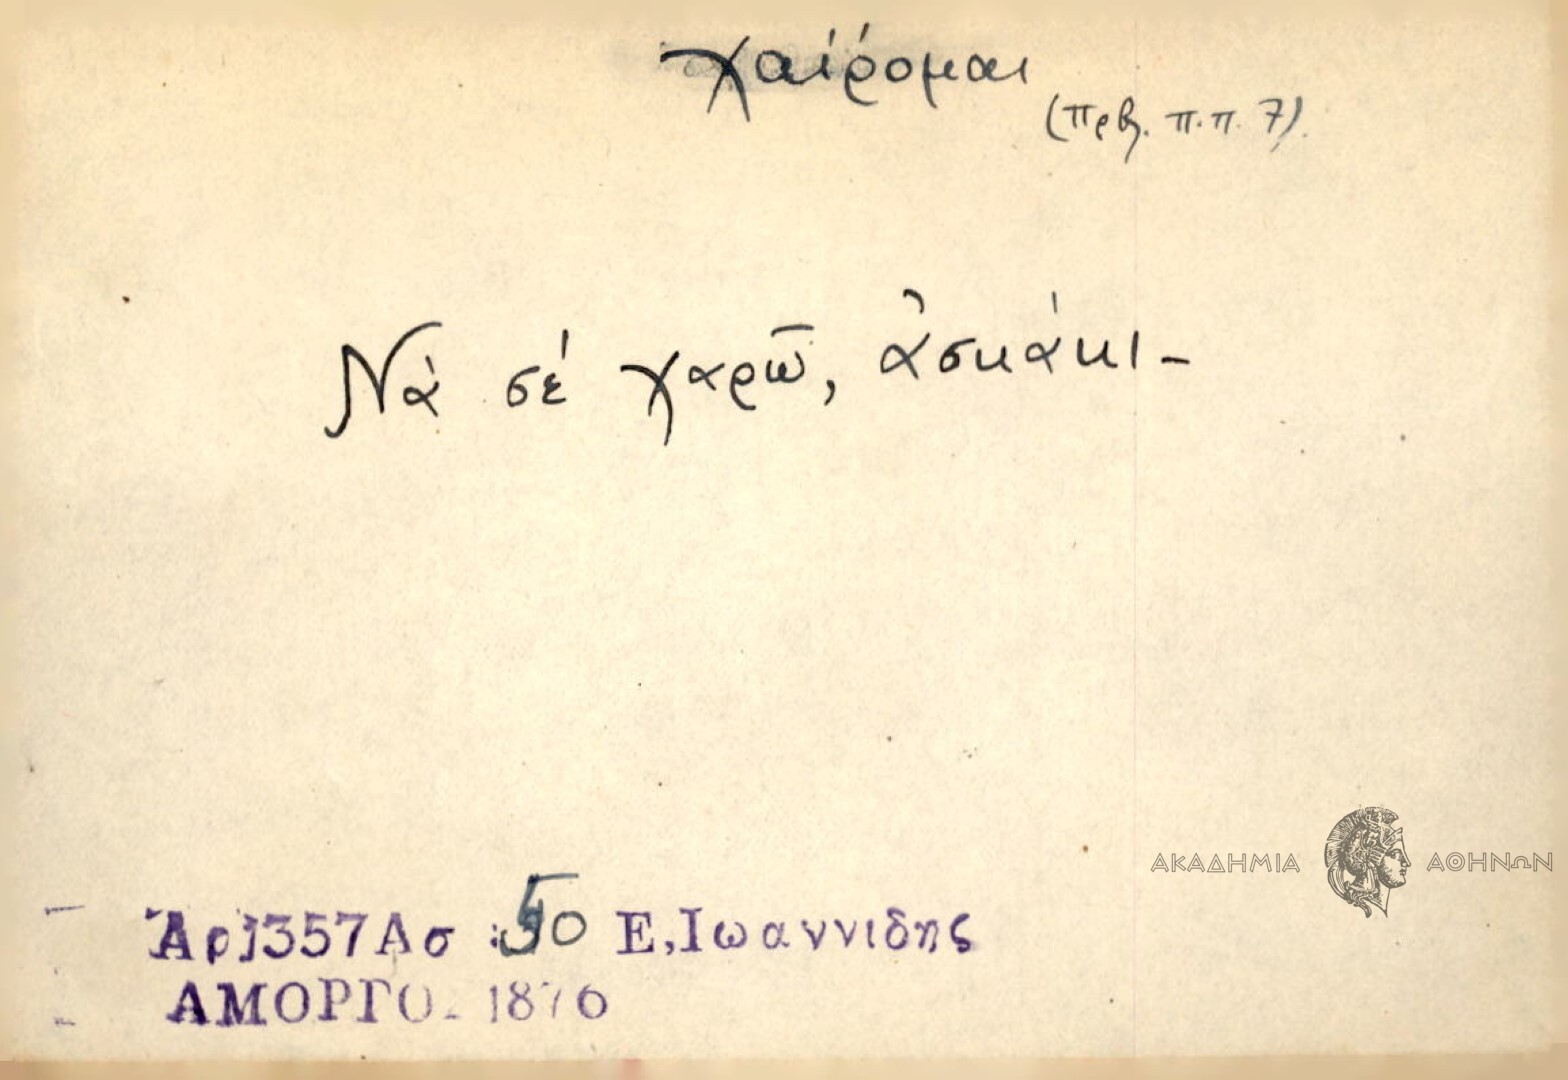 χαίρομαι
(πρβ. π.π. 7).
Νὰ σὲ χαρῶ, ἀσκάκι -
ΑΚΑΔΗΜΙΑ ΑΘΗΝΩΝ
Ἀρ1357Ασ 50 Ε,Ιωαννιδης
ΑΜΟΡΓΟ. 1876